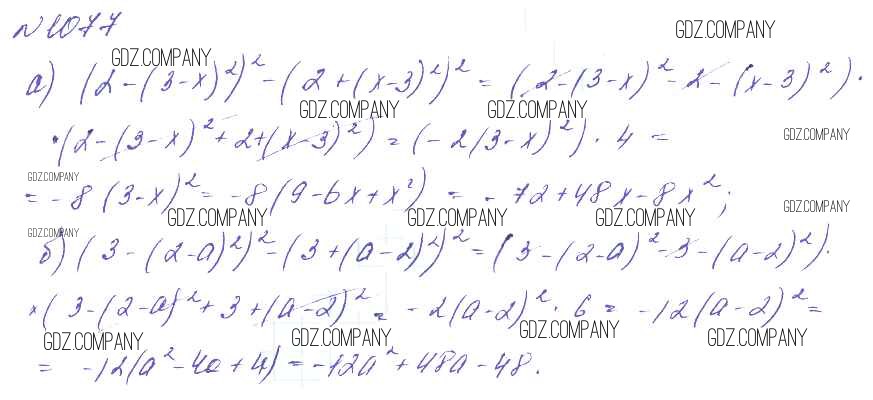 №1077
GDZ.COMPANY
GDZ.COMPANY
а) (2-(3-x)²)²-(2+(x-3)²)²=(2-(3-x)²-2-(x-3)²)·
GDZ.COMPANY GDZ.COMPANY
·(2-(3-x)²+2+(x-3)²)=(-2(3-x)²)·4=
GDZ.COMPANY
GDZ.COMPANY
=-8(3-x)²=-8(9-6x+x²)=-72+48x-8x²;
GDZ.COMPANY
GDZ.COMPANY GDZ.COMPANY GDZ.COMPANY
GDZ.COMPANY
б) (3-(2-a)²)²-(3+(a-2)²)²=(3-(2-a)²-3-(a-2)²)·
×(3-(2-a)²+3+(a-2)²=-2(a-2)²·6=-12(a-2)²=
GDZ.COMPANY GDZ.COMPANY GDZ.COMPANY GDZ.COMPANY
=-12(a²-4a+4)=-12a²+48a-48.